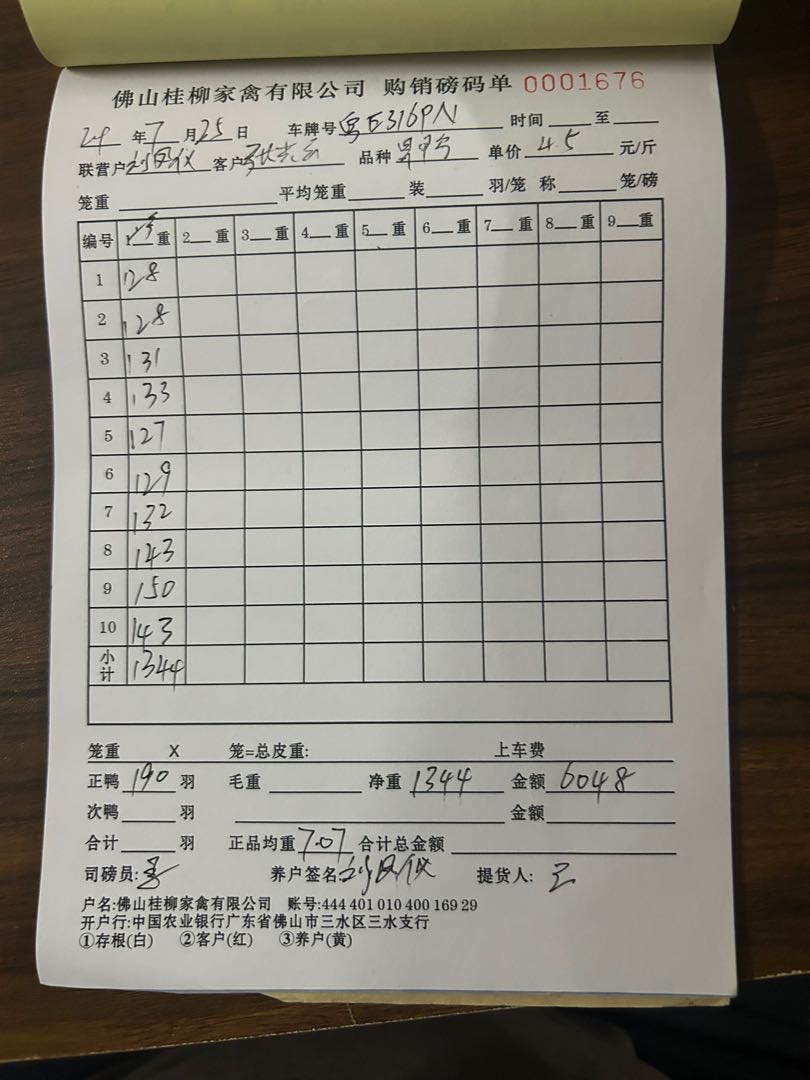 佛山桂柳家禽有限公司 购销磅码单 0001676
24 年 7 月 25 日 车牌号 粤E316PN 时间 至
联营户 仪 客户 张 云 品种 单价 4.5 元/斤
笼重 平均笼重 装 羽/笼 称 笼/磅
编号 1 重 2 重 3 重 4 重 5 重 6 重 7 重 8 重 9 重
1 128
2 128
3 131
4 133
5 127
6 129
7 132
8 143
9 150
10 143
小计 1344
笼重 X 笼=总皮重: 上车费
正鸭 190 羽 毛重 净重 1344 金额 6048
次鸭 羽 金额
合计 羽 正品均重 7.07 合计总金额
司磅员: 养户签名: 仪 提货人:
户名:佛山桂柳家禽有限公司 账号:444 401 010 400 169 29
开户行:中国农业银行广东省佛山市三水区三水支行
①存根(白) ②客户(红) ③养户(黄)